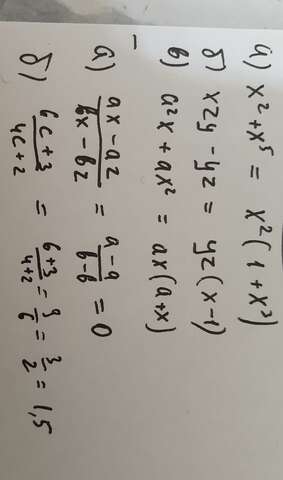 а) x² + x⁵ = x²(1 + x³)
б) xzy - yz = yz(x-1)
в) a²x + ax² = ax(a+x)
–
а) (ax - az)/(bx - bz) = (a-a)/(b-b) = 0
б) (6c+3)/(4c+2) = (6+3)/(4+2) = 9/6 = 3/2 = 1,5